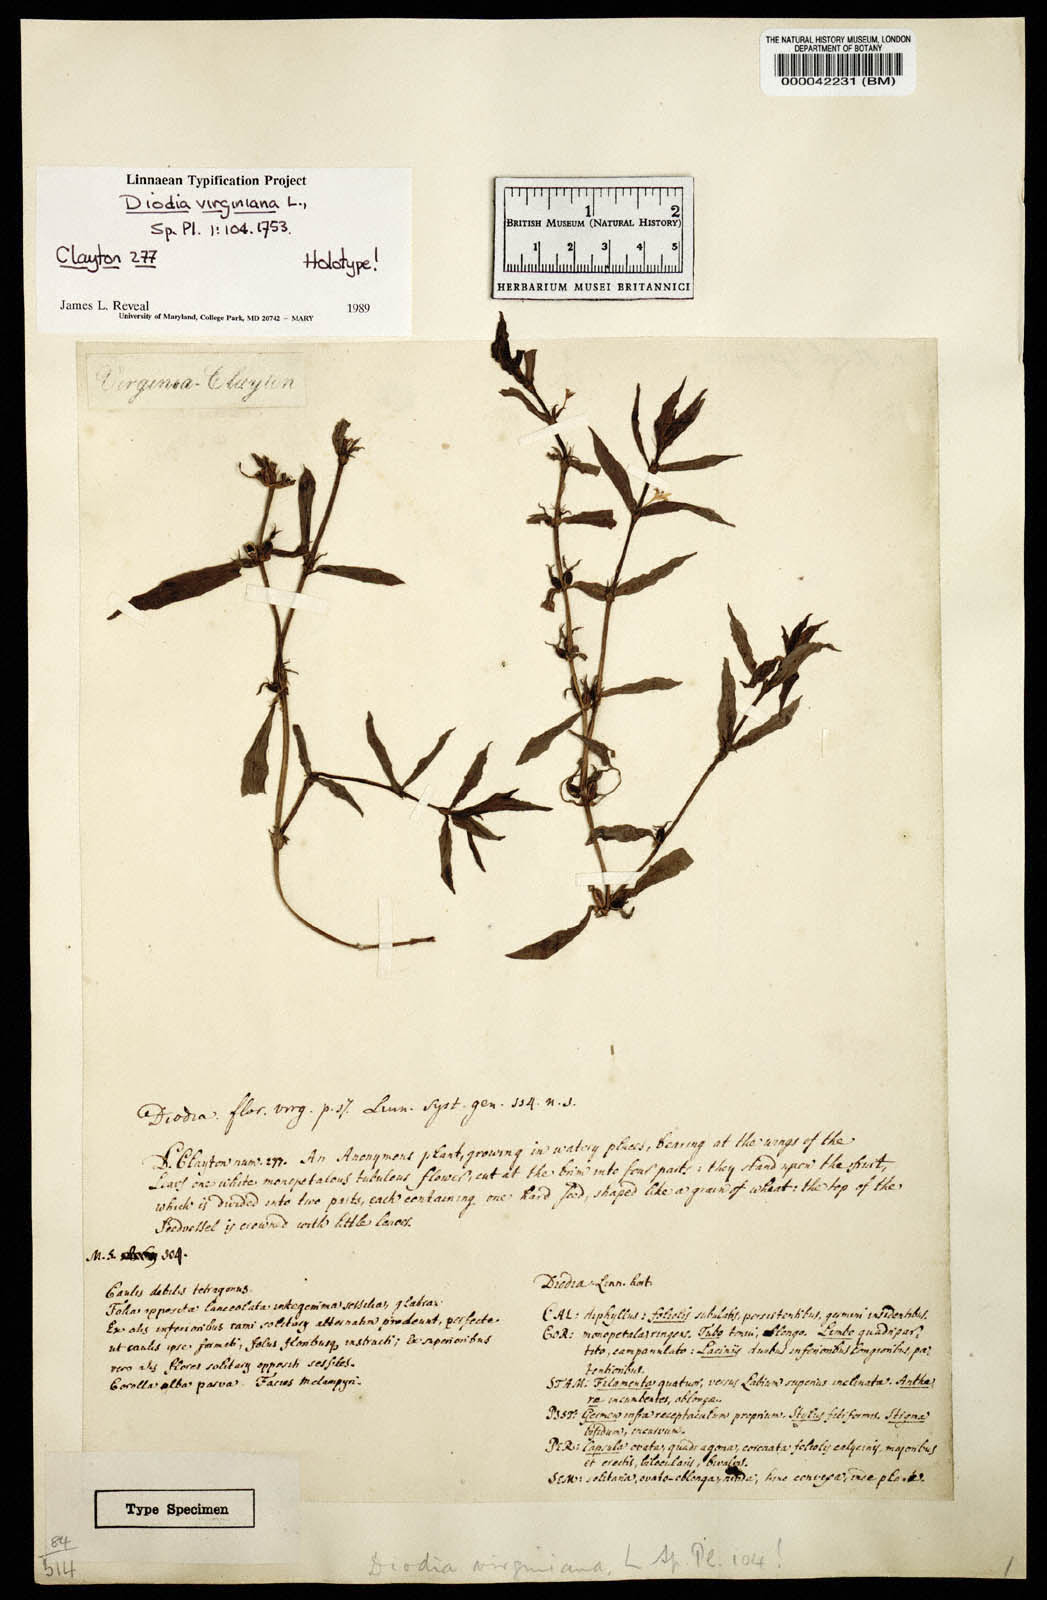 THE NATURAL HISTORY MUSEUM, LONDON
DEPARTMENT OF BOTANY
000042231 (BM)
Linnaean Typification Project
Diodia virginiana L.,
Sp. Pl. 1: 104. 1753.
Clayton 277 Holotype!
James L. Reveal 1989
University of Maryland, College Park, MD 20742 – MARY
1 2
BRITISH MUSEUM (NATURAL HISTORY)
1 2 3 4 5
HERBARIUM MUSEI BRITANNICI
Virginia - Clayton
Diodia. flor. virg. p. 17. Linn. Syst. gen. 114. n. 1.
D. Clayton num. 277. An Anonymous plant, growing in watery places, bearing at the wings of the
Leaves one white monopetalous tubulous flower, cut at the brim into four parts: they stand upon the fruit,
which is divided into two parts, each containing one hard seed, shaped like a grain of wheat: the top of the
Seedvessel is crowned with little leaves.
M. S. 104.
Caulis debilis tetragonus.
Folia opposita lanceolata integerrima sessilia, glabra.
Ex alis inferioribus rami solitary alternatim prodeunt, perfecte
ut caulis ipse formati, foliis floribusq instructi; Ex superioribus
vero alis flores solitary oppositi sessiles.
Corolla alba parva. Facies Melampyri.
Diodia Linn. hort.
CAL: diphyllus: foliolis subulatis, persistentibus, germini insidentibus.
COR: monopetala ringens. Tubo tenui, oblongo. Limbo quadripar,
tito, campanulato: Laciniis duabus inferioribus longioribus, pa,
tentioribus.
STAM: Filamenta quatuor, versus Labium superius inclinata. Anthe,
ræ incumbentes, oblongæ.
PIST: Germen infra receptaculum proprium. Stylus filiformis. Stigma
bifidum, incurvum.
PER: Capsula ovata, quadragona, coronata foliolis calycinis majoribus
et erectis, bilocularis, bivalvis.
SEM: solitaria, ovato-oblonga, hinc convexa, inde plana.
Type Specimen
84
514
Diodia virginiana, L. Sp. Pl. 104!
1